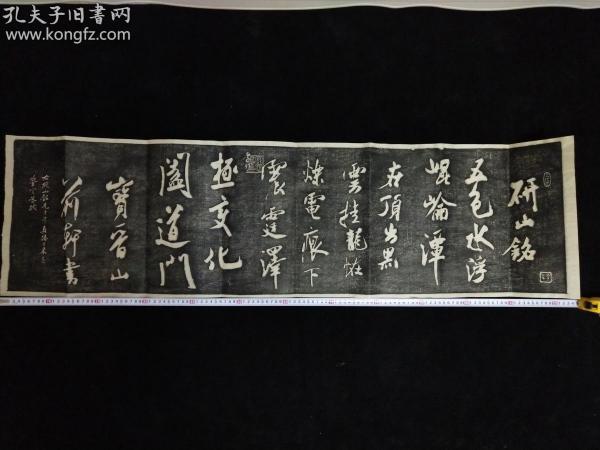 孔夫子旧书网
www.kongfz.com
研山銘
五色水浮
崐崘潭
在頂出黑
雲挂龍恠
爍電痕下
震霆澤
極變化
闔道門
寶晉山
前軒書